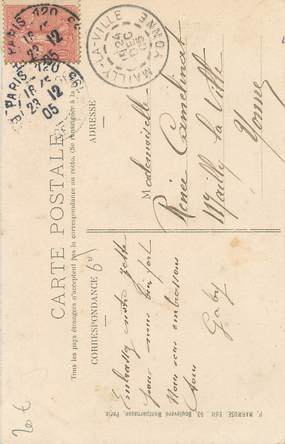 CARTE POSTALE
Tous les pays étrangers n'acceptent pas la correspondance au recto. (Se renseigner à la poste).
CORRESPONDANCE
ADRESSE
Embrassez
pour nous bien fort
Nous vous embrassons
tous
Gaby
Mademoiselle
Renée Camélinat
Mailly la Ville
Yonne
MAILLY-LA-VILLE
YONNE
24
DEC
05
PARIS
23 12
05
P. MARMUSE Edit. 53, Boulevard Montparnasse, Paris.
20 €